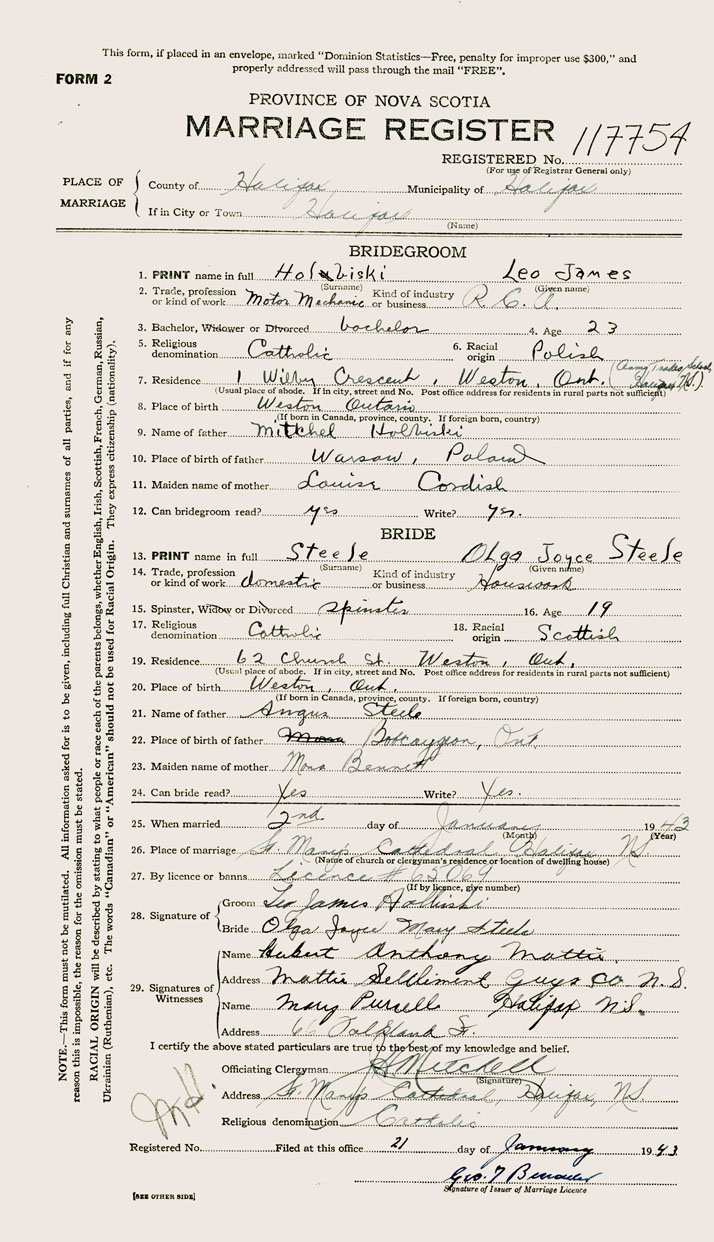 This form, if placed in an envelope, marked "Dominion Statistics—Free, penalty for improper use $300," and
properly addressed will pass through the mail "FREE".
FORM 2
PROVINCE OF NOVA SCOTIA
MARRIAGE REGISTER
REGISTERED No. 117754
(For use of Registrar General only)
PLACE OF MARRIAGE
County of Halifax Municipality of Halifax
If in City or Town Halifax
(Name)
BRIDEGROOM
1. PRINT name in full Holubiski Leo James
(Surname) (Given name)
2. Trade, profession or kind of work Motor Mechanic Kind of industry or business R. C. A.
3. Bachelor, Widower or Divorced bachelor 4. Age 23
5. Religious denomination Catholic 6. Racial origin Polish
7. Residence 1 Wilby Crescent, Weston, Ont. (Army Trades School, Halifax N.S.)
(Usual place of abode. If in city, street and No. Post office address for residents in rural parts not sufficient)
8. Place of birth Weston Ontario
(If born in Canada, province, county. If foreign born, country)
9. Name of father Mitchel Holbiski
10. Place of birth of father Warsaw, Poland
11. Maiden name of mother Louise Cordish
12. Can bridegroom read? yes Write? yes.
BRIDE
13. PRINT name in full Steele Olga Joyce Steele
(Surname) (Given name)
14. Trade, profession or kind of work domestic Kind of industry or business Housework
15. Spinster, Widow or Divorced spinster 16. Age 19
17. Religious denomination Catholic 18. Racial origin Scottish
19. Residence 62 Church St. Weston, Ont.
(Usual place of abode. If in city, street and No. Post office address for residents in rural parts not sufficient)
20. Place of birth Weston, Ont.
(If born in Canada, province, county. If foreign born, country)
21. Name of father Angus Steele
22. Place of birth of father Bobcaygeon, Ont.
23. Maiden name of mother Mona Bennett
24. Can bride read? Yes Write? Yes.
25. When married 2nd day of January 1943
(Month) (Year)
26. Place of marriage St. Mary's Cathedral Halifax NS
(Name of church or clergyman's residence or location of dwelling house)
27. By licence or banns Licence # 65069
(If by licence, give number)
28. Signature of
Groom Leo James Holbiski
Bride Olga Joyce Mary Steele
29. Signatures of Witnesses
Name Hubert Anthony Mattie
Address Mattie Settliment Guys Co N.S.
Name Mary Purcell Halifax N.S.
Address Falkland St.
I certify the above stated particulars are true to the best of my knowledge and belief.
Officiating Clergyman Mitchell
(Signature)
Address St. Mary's Cathedral, Halifax, NS.
Religious denomination Catholic
Registered No. Filed at this office 21 day of January 1943
Signature of Issuer of Marriage Licence
[SEE OTHER SIDE]
NOTE.—This form must not be mutilated. All information asked for is to be given, including full Christian and surnames of all parties, and if for any
reason this is impossible, the reason for the omission must be stated.
RACIAL ORIGIN will be described by stating to what people or race each of the parents belongs, whether English, Irish, Scottish, French, German, Russian,
Ukrainian (Ruthenian), etc. The words "Canadian" or "American" should not be used for Racial Origin. They express citizenship (nationality).